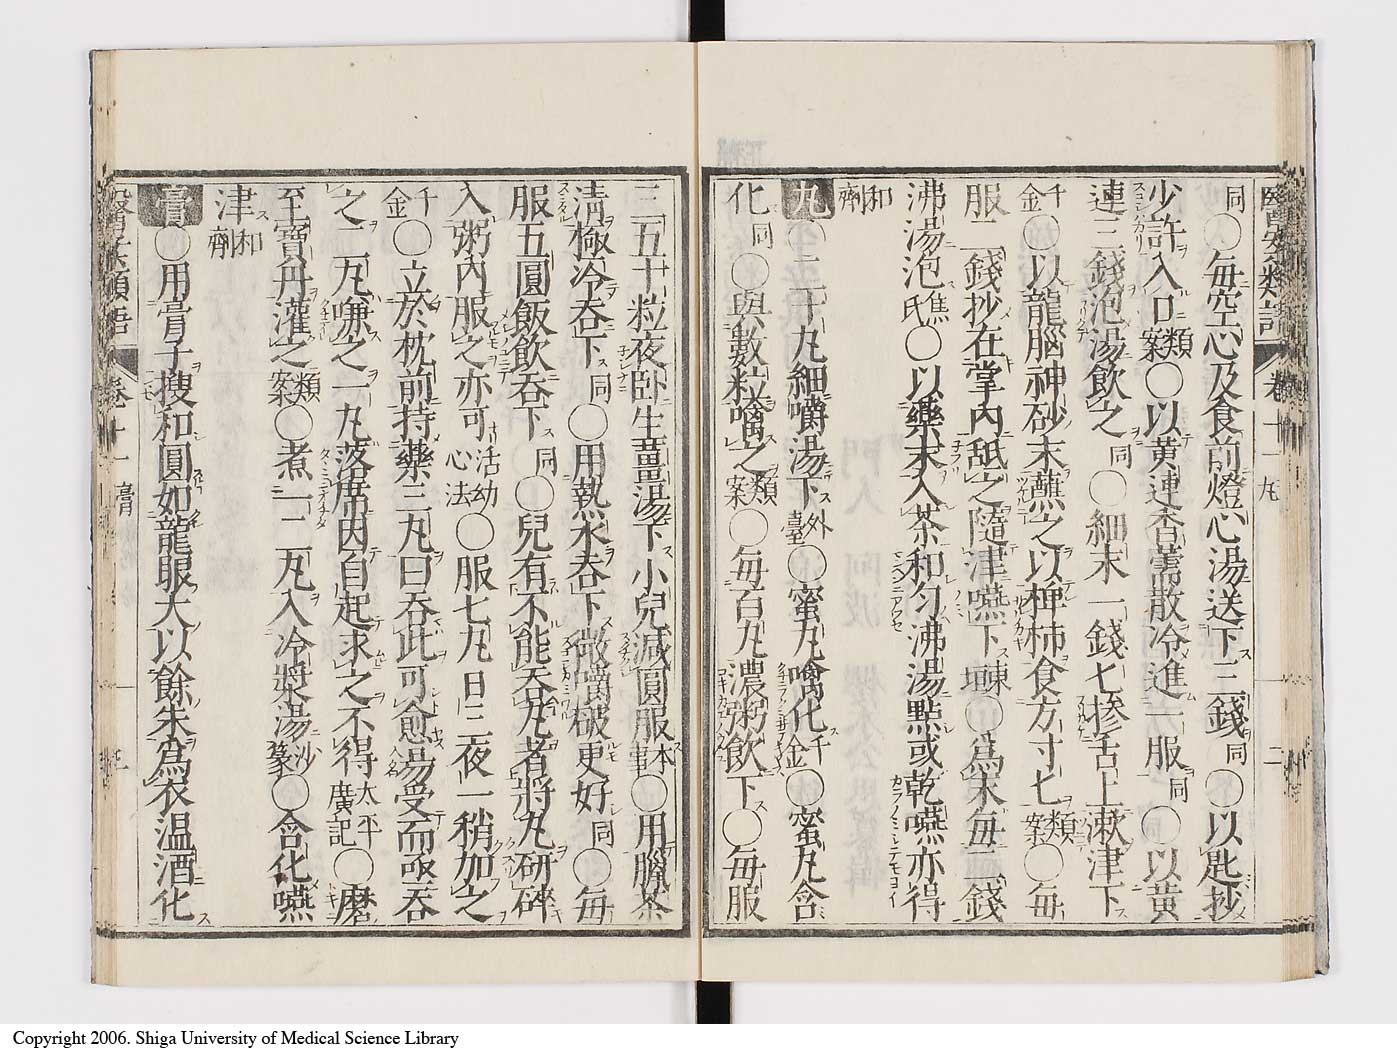 同〇毎空心及食前燈心湯送下三錢同〇以匙抄
少許入口類案〇以黃連香薷散冷進一服同〇以黃
連三錢泡湯飲之同〇細末一錢匕摻舌上漱津下
千金〇以龍腦神砂末蘸之以椑柿食方寸匕類案〇毎
服二錢抄在掌內舐之隨津嚥下 〇爲末毎一錢
沸湯泡 〇以藥末入茶和勻沸湯點或乾嚥亦得
和劑
丸〇二十丸細嚼湯下外臺〇蜜丸噙化千金〇蜜丸含
化同〇與數粒噙之類案〇毎百丸濃粥飲下〇毎服
三五十粒夜臥生薑湯下小兒減圓服本事〇用臘茶
淸極冷呑下同〇用熱水呑下微嚼破更好同〇毎
服五圓飯飲呑下同〇兒有不能呑丸者將丸硏碎
入粥內服之亦可活幼心法〇服七丸日三夜一稍加之
千金〇立於枕前持藥三丸曰呑此可愈 受而 呑
之二丸嗛之一丸落席因自起求之不得太平廣記〇磨
至寶丹灌之類案〇煮一二丸入冷漿湯沙篆〇含化嚥
津和劑
膏〇用膏子搜和圓如龍眼大以餘朱爲衣温酒化
卷十一 丸 二
卷十一 膏
Copyright 2006. Shiga University of Medical Science Library